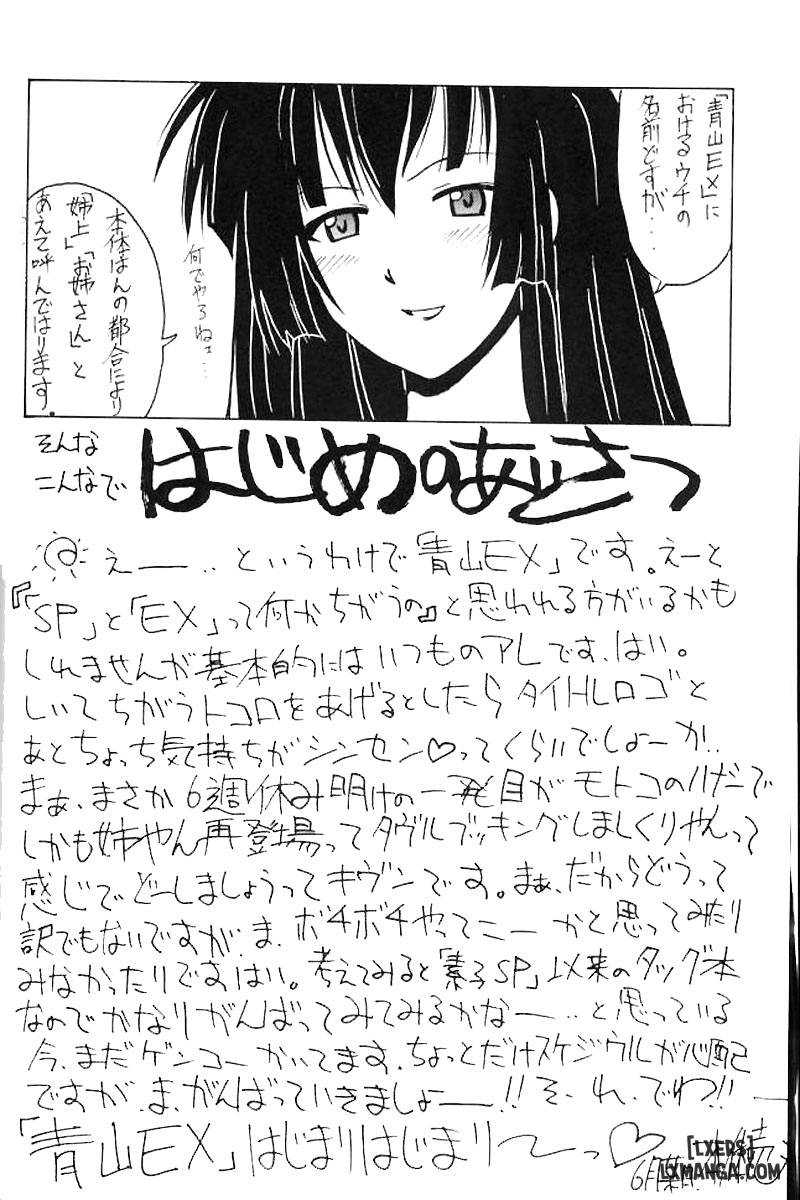 「青山EX」に
おけるウチの
名前どすが…
何でやろねェ…
本体はんの都合により
姉上」「お姉さん」と
あえて呼んではります。
そんな
こんなで
はじめのあいさつ
えー…というわけで「青山EX」です。えーと
『「SP」と「EX」って何かちがうの』と思われる方がいるかも
しれませんが基本的にはいつものアレです、はい。
しいてちがうトコロをあげるとしたらタイトルロゴと
あとちょっち気持ちがシンセン♡ってくらいでしょーか‥
まぁ、まさか6週休み明けの一発目がモトコのハダーで
しかも姉やん再登場ってダヴルブッキングしましくりやんって
感じでどーしましょうってキヴンです。まぁ、だからどうって
訳でもないですが、ま、ボチボチやってこーかと思ってみたり
みなかったりですはい。考えてみると「素子SP」以来のタッグ本
なのでかなりがんばってみてみるかなー…と思っている
今、まだゲンコーかいてます、ちょっとだけスケジウルが心配
ですが、ま、がんばっていきましょー!!そ、れ、でわっ!!
「青山EX」はじまりはじまり〜っ♡
6月
[LXERS]
LXMANGA.COM